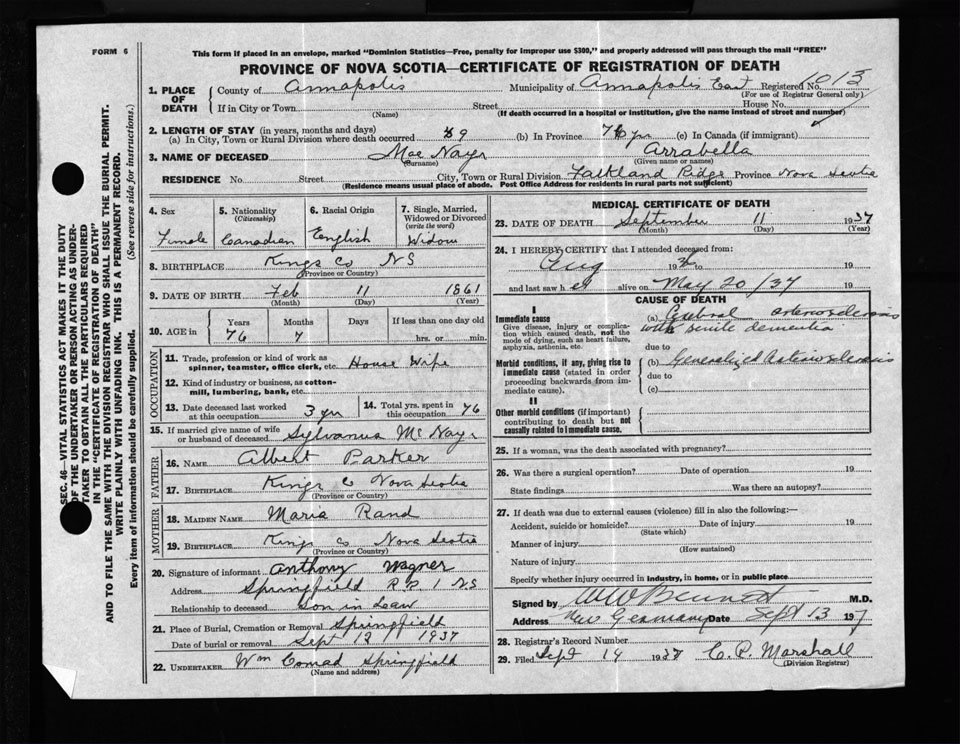 FORM 6
This form if placed in an envelope, marked "Dominion Statistics—Free, penalty for improper use $300," and properly addressed will pass through the mail "FREE"
PROVINCE OF NOVA SCOTIA—CERTIFICATE OF REGISTRATION OF DEATH
1. PLACE OF DEATH
County of Annapolis Municipality of Annapolis East Registered No. 013
(For use of Registrar General only)
If in City or Town Street House No.
(Name) (If death occurred in a hospital or institution, give the name instead of street and number)
2. LENGTH OF STAY (in years, months and days)
(a) In City, Town or Rural Division where death occurred 59 (b) In Province 76 yrs (c) In Canada (if immigrant)
3. NAME OF DECEASED Mac Nayr Arrabella
(Surname) (Given name or names)
RESIDENCE No. Street City, Town or Rural Division Falkland Ridge Province Nova Scotia
(Residence means usual place of abode. Post Office Address for residents in rural parts not sufficient)
4. Sex
Female
5. Nationality
(Citizenship)
Canadian
6. Racial Origin
English
7. Single, Married, Widowed or Divorced
(write the word)
Widow
8. BIRTHPLACE Kings Co NS
(Province or Country)
9. DATE OF BIRTH Feb 11 1861
(Month) (Day) (Year)
10. AGE in
Years Months Days If less than one day old
76 7 hrs. or min.
OCCUPATION
11. Trade, profession or kind of work as
spinner, teamster, office clerk, etc. House Wife
12. Kind of industry or business, as cotton-
mill, lumbering, bank, etc.
13. Date deceased last worked
at this occupation 3 yrs
14. Total yrs. spent in
this occupation 76
15. If married give name of wife
or husband of deceased Sylvanus McNayr
FATHER
16. NAME Albert Parker
17. BIRTHPLACE Kings Co Nova Scotia
(Province or Country)
MOTHER
18. MAIDEN NAME Maria Rand
19. BIRTHPLACE Kings Co Nova Scotia
(Province or Country)
20. Signature of informant Anthony Wagner
Address Springfield R.R. 1 NS
Relationship to deceased Son in Law
21. Place of Burial, Cremation or Removal Springfield
Date of burial or removal Sept 12 1937
22. UNDERTAKER Wm Conrad Springfield
(Name and address)
MEDICAL CERTIFICATE OF DEATH
23. DATE OF DEATH September 11 1937
(Month) (Day) (Year)
24. I HEREBY CERTIFY that I attended deceased from:
Aug 193 to 19
and last saw her alive on May 20/37 19
CAUSE OF DEATH
I
Immediate cause
Give disease, injury or complication which caused death, not the mode of dying, such as heart failure, asphyxia, asthenia, etc.
(a) Cerebral arteriosclerosis
with senile dementia
due to
Morbid conditions, if any, giving rise to immediate cause (stated in order proceeding backwards from immediate cause).
(b) Generalized arteriosclerosis
due to
(c)
II
Other morbid conditions (if important) contributing to death but not causally related to immediate cause.
25. If a woman, was the death associated with pregnancy?
26. Was there a surgical operation? Date of operation 19
State findings Was there an autopsy?
27. If death was due to external causes (violence) fill in also the following:—
Accident, suicide or homicide? Date of injury 19
(State which)
Manner of injury
(How sustained)
Nature of injury
Specify whether injury occurred in industry, in home, or in public place
Signed by W W Bennett M.D.
Address New Germany Date Sept 13 1937
28. Registrar's Record Number
29. Filed Sept 14 1937 C. P. Marshall
(Division Registrar)
SEC. 46—VITAL STATISTICS ACT MAKES IT THE DUTY
OF THE UNDERTAKER OR PERSON ACTING AS UNDER-
TAKER TO OBTAIN ALL THE PARTICULARS REQUIRED
IN THE "CERTIFICATE OF REGISTRATION OF DEATH"
AND TO FILE THE SAME WITH THE DIVISION REGISTRAR WHO SHALL ISSUE THE BURIAL PERMIT.
WRITE PLAINLY WITH UNFADING INK. THIS IS A PERMANENT RECORD.
Every item of information should be carefully supplied. (See reverse side for instructions.)